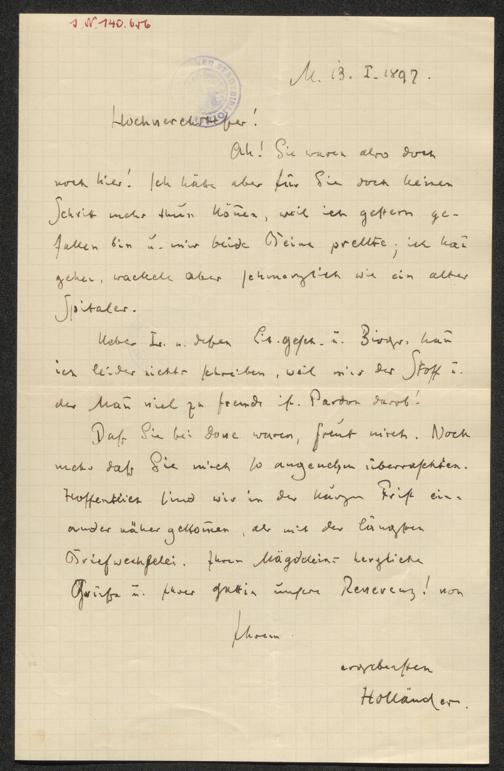 J.N. 140.656
M. 13. I. 1897.
Hochverehrtester!
Ah! Sie waren also doch
noch hier! Ich hätte aber für Sie doch keinen
Schritt mehr thun können, weil ich gestern ge-
fallen bin u. mir beide Beine prellte; ich kañ
gehen, wackele aber schmerzlich wie ein alter
Spitaler.
Ueber u. dessen Lit.gesch. u. Biogr. kañ
ich leider nichts schreiben, weil mir der Stoff u.
der Mañ viel zu fremd ist. Pardon darob!
Daß Sie bei waren, freut mich. Noch
mehr daß Sie mich so angenehm überraschten.
Hoffentlich sind wir in der kurzen Frist ein-
ander näher gekom̄en, als mit der längsten
Briefwechselei. Ihren Mägdelein herzliche
Grüße u. Ihrer Gattin unsere Reverenz! von
Ihrem
ergebensten
Holländer.